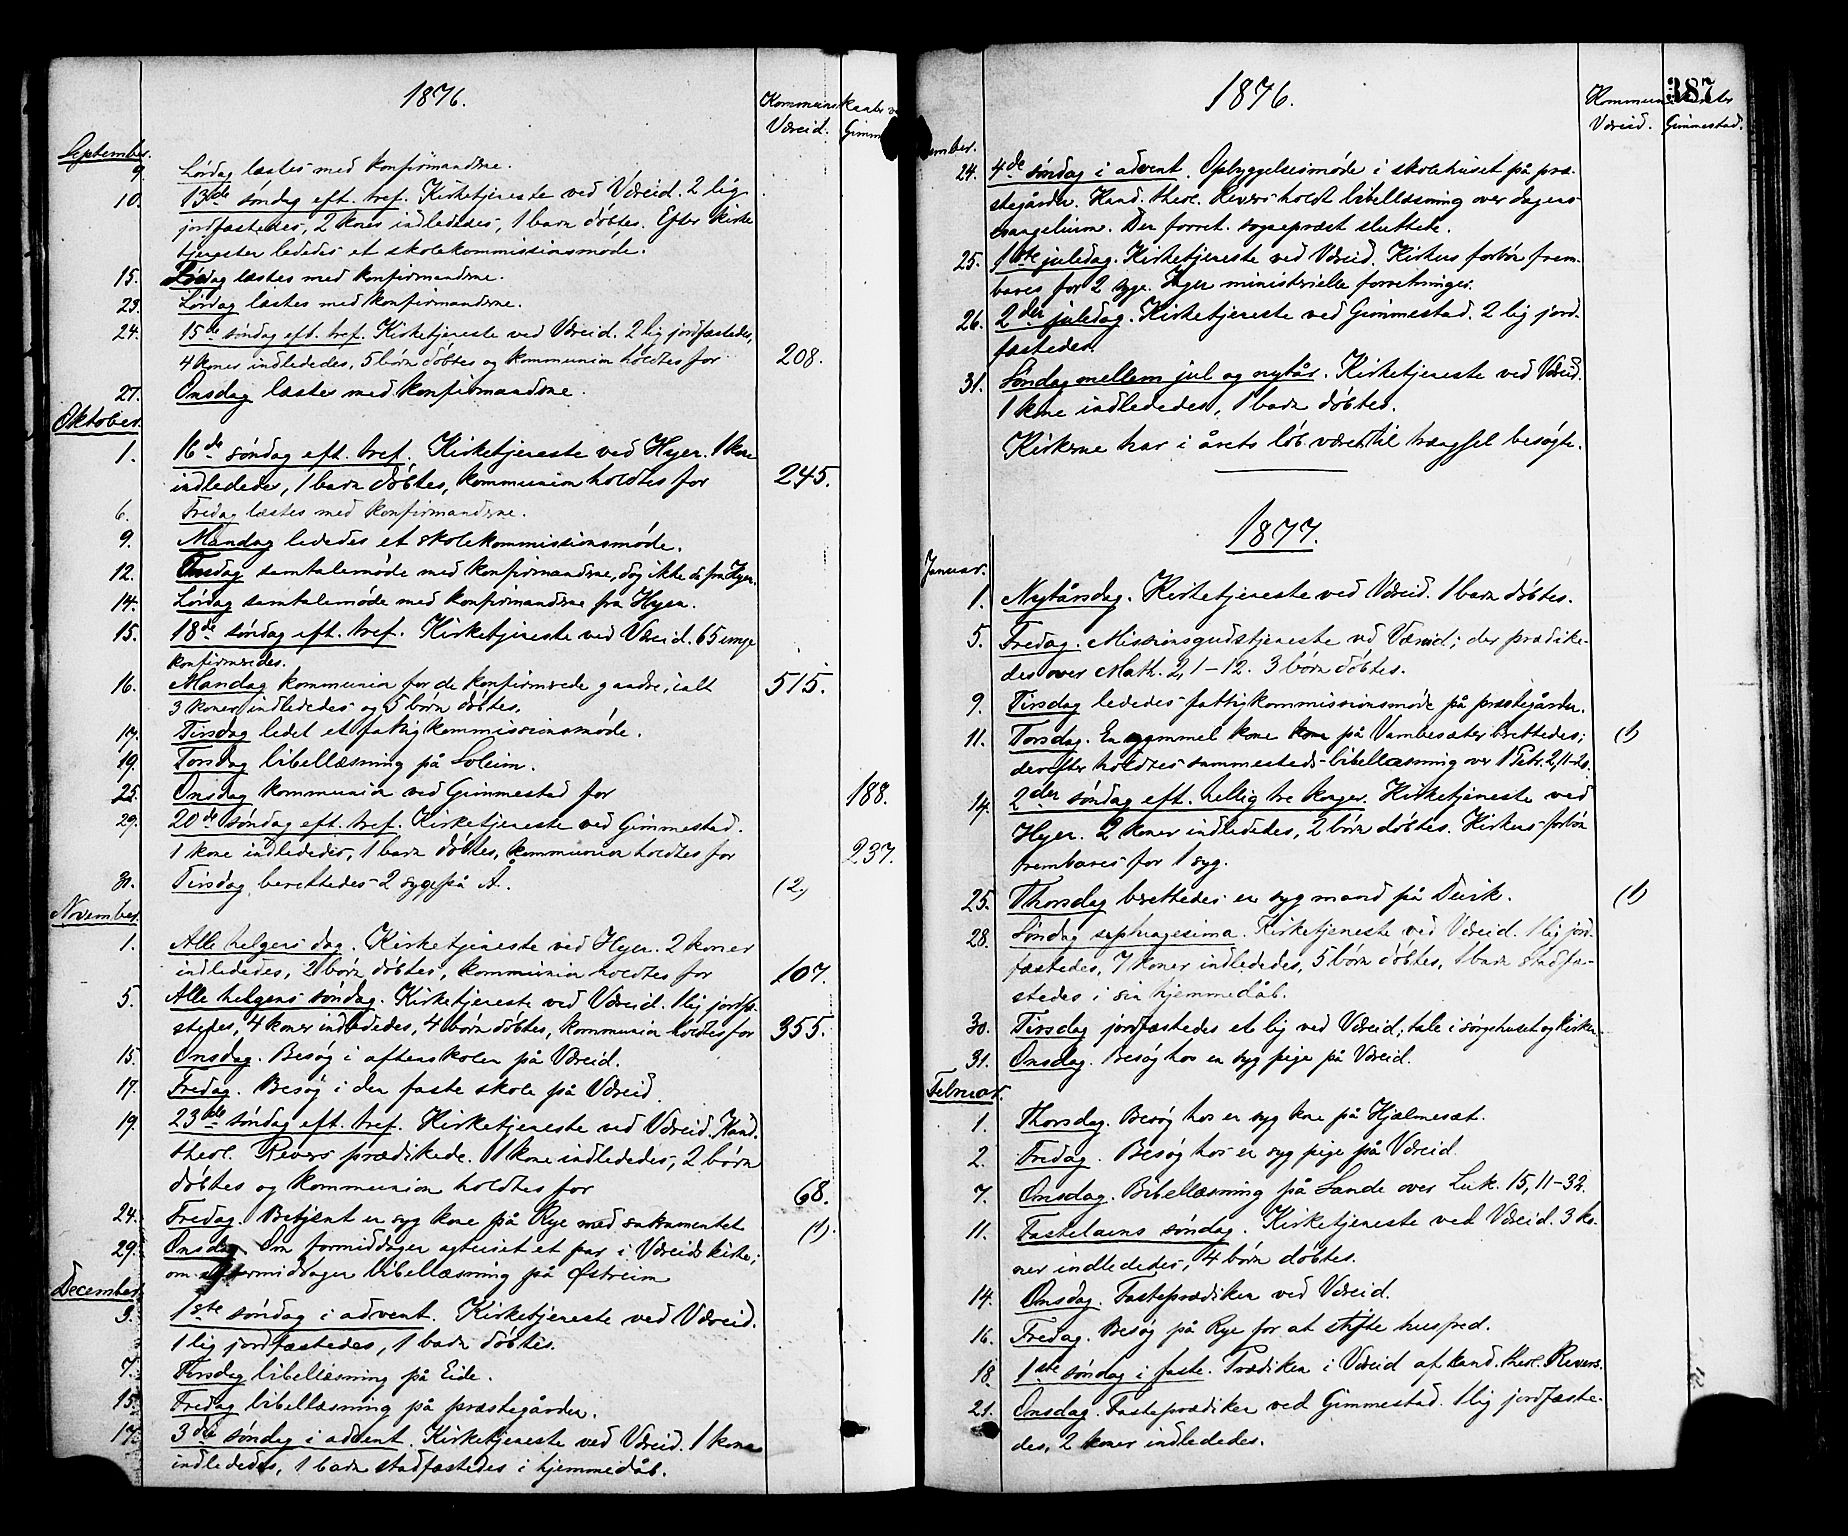 1876.
Kommunikanter ved
Væreid. Gimm
September.
9. Lørdag læstes med konfirmanderne.
10. 13de søndag eft. tref. Kirketjeneste ved Væreid. 2 lig
jordfæstedes, 2 koner indlededes, 1 barn døbtes. Efter kirke
tjenesten lededes et skolekommissionsmøde.
15. Lørdag læstes med konfirmanderne.
23. Lørdag læstes med konfirmanderne.
24. 15de søndag eft. tref. Kirketjeneste ved Væreid. 2 lig jordfæstedes,
4 koner indlededes, 5 børn døbtes og kommunion holdtes for 208.
27. Onsdag læstes med konfirmanderne.
Oktober.
1. 16de søndag eft. tref. Kirketjeneste ved Hyen. 1 kone
indlededes, 1 barn døbtes, kommunion holdtes for 245.
6. Fredag læstes med konfirmanderne.
9. Mandag lededes et skolekommissionsmøde.
12. Torsdag samtalemøde med konfirmanderne, dog ikke de fra Hyen.
14. Lørdag samtalemøde med konfirmanderne fra Hyen.
15. 18de søndag eft. tref. Kirketjeneste ved Væreid. 65 unge
konfirmeredes.
16. Mandag kommunion for de konfirmerede g andre, ialt 515.
3 koner indlededes og 5 børn døbtes.
17. Tirsdag ledet et fattigkommissionsmøde.
19. Torsdag bibellæsning på Soleim.
25. Onsdag kommunion ved Gimmestad for 188.
29. 20de søndag eft. tref. Kirketjeneste ved Gimmestad.
1 kone indlededes, 1 barn døbtes, kommunion holdtes for 237.
31. Tirsdag berettedes 2 syge på Å. (2)
November.
1. Alle helgens dag. Kirketjeneste ved Hyen. 2 koner
indlededes, 2 børn døbtes, kommunion holdtes for 107.
5. Alle helgens søndag. Kirketjeneste ved Væreid. 1 lig jordfæ-
stedes, 4 koner indlededes, 4 børn døbtes, kommunion holdtes for 355.
15. Onsdag. Besøg i aftenskolen på Væreid.
17. Fredag. Besøg i den faste skole på Væreid.
19. 23de søndag eft. tref. Kirketjeneste ved Væreid. Kand.
theol. Revers prædikede. 1 kone indlededes, 2 børn
døbtes og kommunion holdtes for 68.
24. Fredag. Betjent en syg kone på Rye med sakramentet (1).
29. Onsdag. Om formiddagen ægteviet et par i Væreids kirke;
om eftermiddagen bibellæsning på Østreim
December.
3. 1ste søndag i advent. Kirketjeneste ved Væreid.
1 lig jordfæstedes, 1 barn døbtes.
7. Torsdag bibellæsning på Eide.
15. Fredag bibellæsning på præstegården.
17. 3die søndag i advent. Kirketjeneste ved Væreid. 1 kone
indlededes, 1 barn stadfæstedes i hjemmedåb.
387
1876.
Kommunikanter
Væreid. Gimmestad.
ember.
24. 4de søndag i advent. Opbyggelsesmøde i skolehuset på præ-
stegården. Kand. theol. Revers holdt bibellæsning over dagens
evangelium. Den forret. sognepræst sluttede.
25. 1ste juledag. Kirketjeneste ved Væreid. Kirkens forbøn frem-
bares for 2 syge. Ingen ministerielle forretninger.
26. 2den juledag. Kirketjeneste ved Gimmestad. 2 lig jord-
fæstedes.
31. Søndag mellem jul og nytår. Kirketjeneste ved Væreid.
1 kone indlededes, 1 barn døbtes.
Kirkerne har i årets løb været til trængsel besøgte.
1877.
Januar.
1. Nytårsdag. Kirketjeneste ved Væreid. 1 barn døbtes.
5. Fredag. Missionsgudstjeneste ved Væreid; der prædike-
des over Math. 2, 1-12. 3 børn døbtes.
9. Tirsdag lededes fattigkommissionsmøde på præstegården.
11. Torsdag. En gammel kone kone på Vambesæter berettedes; (1)
derefter holdtes sammesteds bibellæsning over 1 Petr. 2, 11-20.
14. 2den søndag eft. hellig tre konger. Kirketjeneste ved
Hyen. 2 koner indlededes, 2 børn døbtes. Kirkens forbøn
frembares for 1 syg.
25. Thorsdag berettedes en syg mand på Devik. (1)
28. Søndag septuagesima. Kirketjeneste ved Væreid. 1 lig jord-
fæstedes, 7 koner indlededes, 5 børn døbtes, 1 barn stadfæ-
stedes i sin hjemmedåb.
30. Tirsdag jordfæstedes et lig ved Væreid; tale i sørgehuset og kirken.
31. Onsdag. Besøg hos en syg pige på Væreid.
Februar.
1. Thorsdag. Besøg hos en syg kone på Hjælmesæt.
2. Fredag. Besøg hos en syg pige på Væreid.
7. Onsdag. Bibellæsning på Sande over Luk. 15, 11-32.
11. Fastelavns søndag. Kirketjeneste ved Væreid. 3 ko-
ner indlededes, 4 børn døbtes.
14. Onsdag. Fasteprædiken ved Væreid.
16. Fredag. Besøg på Rye for at stifte husfred.
18. 1ste søndag i faste. Prædiken i Væreid af kand. theol. Revers.
21. Onsdag. Fasteprædiken ved Gimmestad. 1 lig jordfæste-
des, 2 koner indlededes.